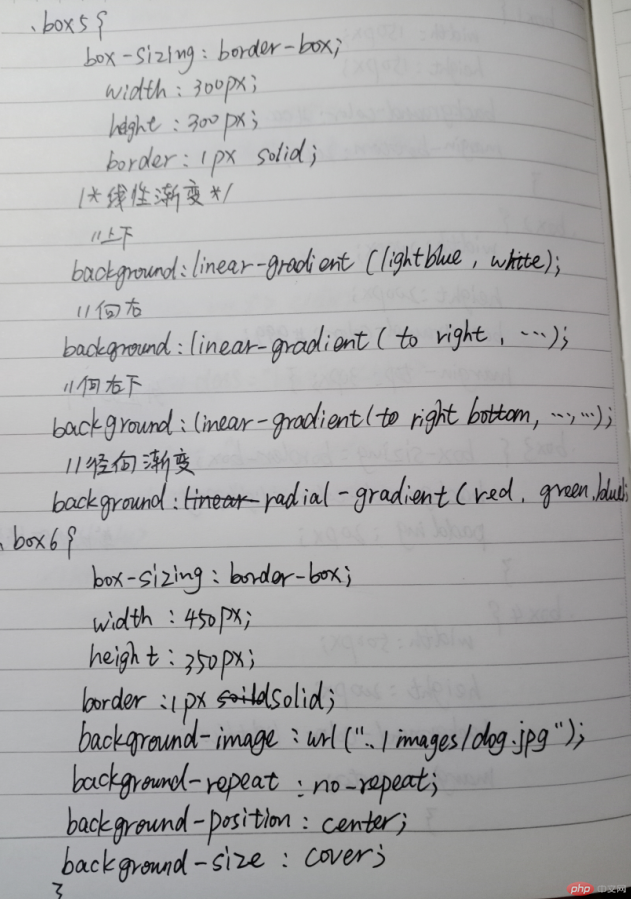 .box5{
box-sizing: border-box;
width: 300px;
height: 300px;
border: 1px solid;
/*线性渐变*/
//上下
background: linear-gradient (lightblue, white);
//向右
background: linear-gradient( to right, ...);
//向右下
background: linear-gradient(to right bottom, ...,...);
//径向渐变
background: linear- radial-gradient(red, green, blue);
.box6{
box-sizing: border-box;
width: 450px;
height: 350px;
border: 1px soild solid;
background-image: url("../images/dog.jpg");
background-repeat: no-repeat;
background-position: center;
background-size: cover;
}
php 中文网